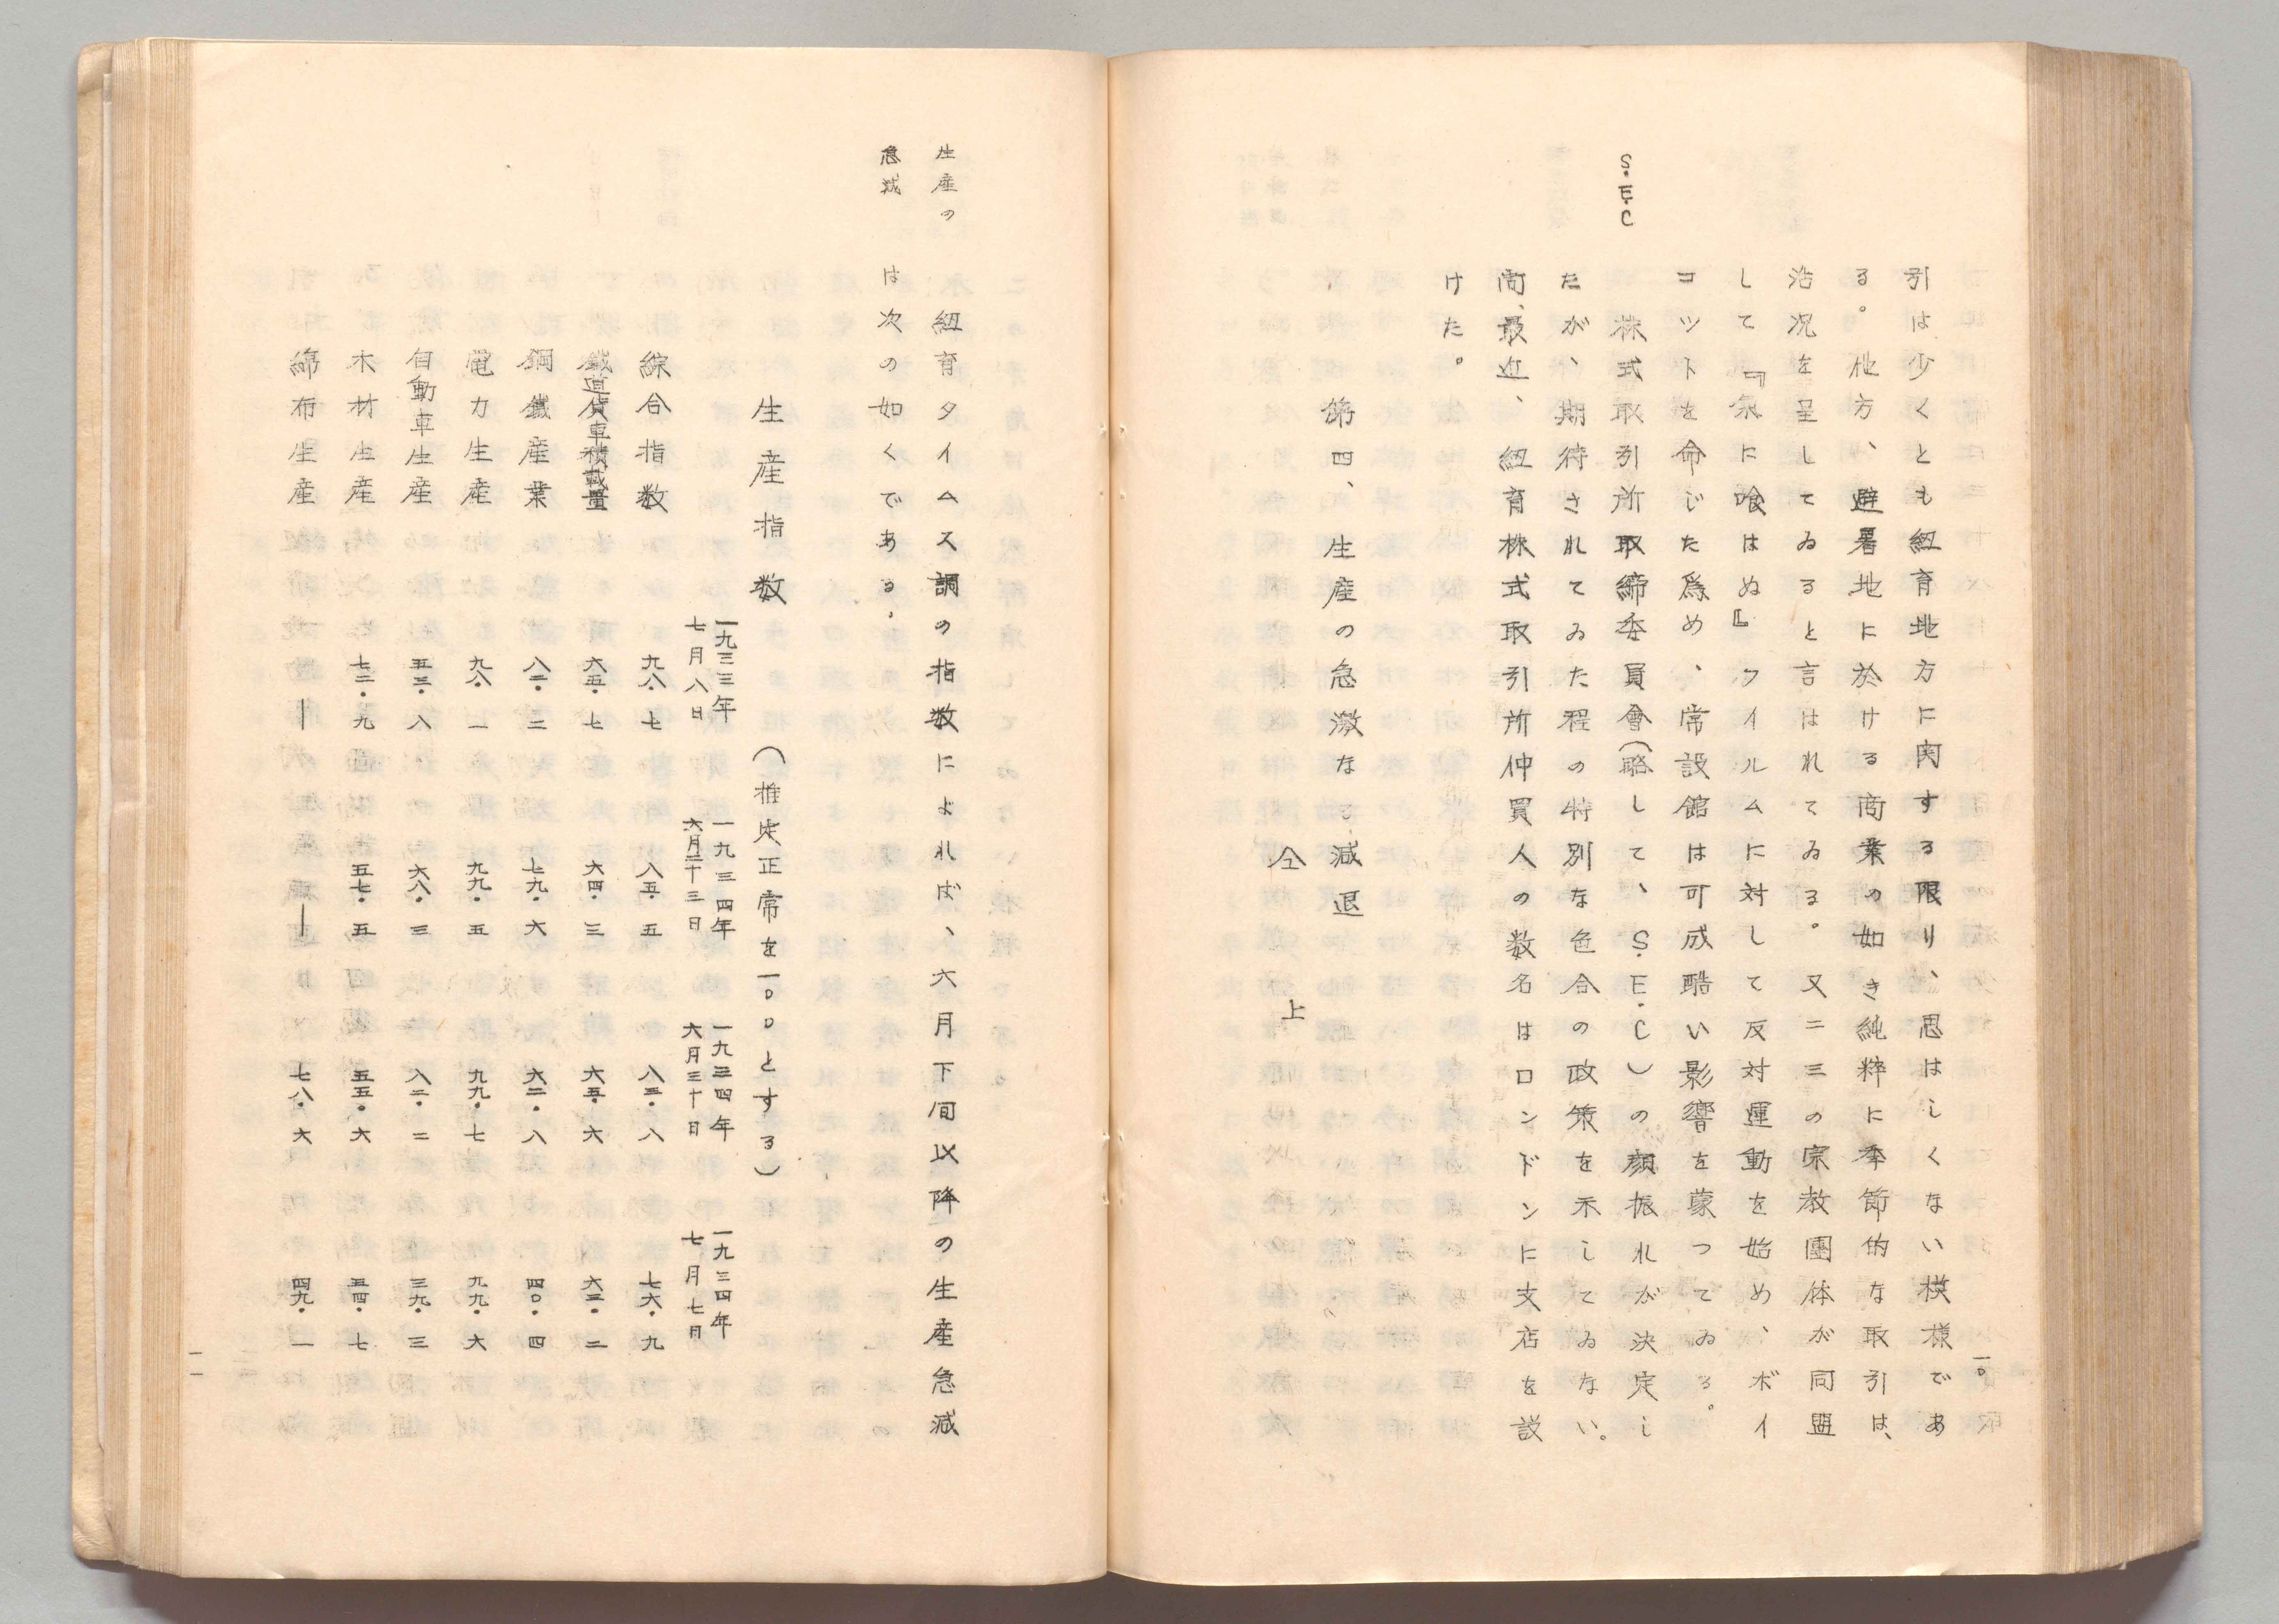 一〇
引は少くとも紐育地方に関する限り、思はしくない模様であ
る。地方、避暑地に於ける商業の如き純粋に季節的な取引は、
沽況を呈してゐると言はれてゐる。又二三の宗教團体が同盟
して『余に喰はぬ』フイルムに対して反対運動を始め、ボイ
コツトを命じた爲め、常設館は可成酷い影響を蒙つてゐる。
S.E.C
株式取引所取締委員會(略して、S.E.C)の顔振れが決定し
たが、期待されてゐた程の特別な色合の政策を示してゐない。
尚、最近、紐育株式取引所仲買人の数名はロンドンに支店を設
けた。
第四、生産の急激なる減退
仝上
生産の
急減
紐育タイムス調の指数によれば、六月下旬以降の生産急減
は次の如くである。
生産指数 (推定正常を一〇〇とする)
一九三三年七月八日 一九三四年六月二十三日 一九三四年六月三十日 一九三四年七月七日
綜合指数 九八・七 八五・五 八三・八 七六・九
鐵道貨車積載量 六五・七 六四・三 六五・六 六三・二
鋼鐵産業 八二・二 七九・六 六二・八 四〇・四
電力生産 九八・一 九九・五 九九・七 九九・六
自動車生産 五三・八 六八・三 八二・二 三九・三
木材生産 七二・九 五七・五 五五・六 五四・七
綿布生産 — — 七八・六 四九・一
一一